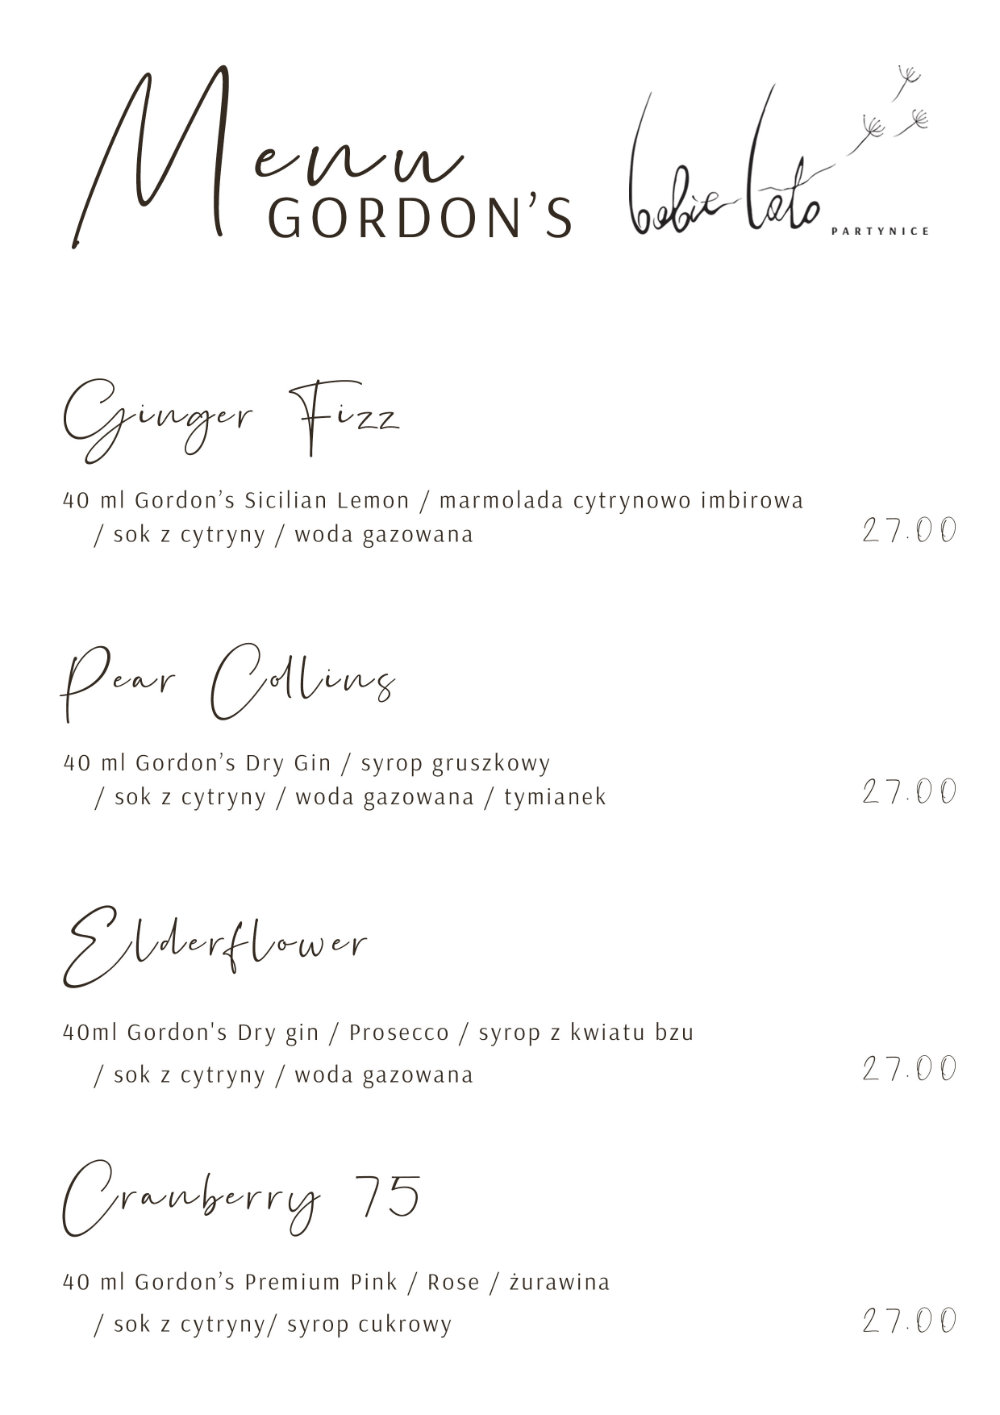 Menu
GORDON’S
babie lato
PARTYNICE
Ginger Fizz
40 ml Gordon’s Sicilian Lemon / marmolada cytrynowo imbirowa
/ sok z cytryny / woda gazowana
27.00
Pear Collins
40 ml Gordon’s Dry Gin / syrop gruszkowy
/ sok z cytryny / woda gazowana / tymianek
27.00
Elderflower
40ml Gordon's Dry gin / Prosecco / syrop z kwiatu bzu
/ sok z cytryny / woda gazowana
27.00
Cranberry 75
40 ml Gordon’s Premium Pink / Rose / żurawina
/ sok z cytryny/ syrop cukrowy
27.00